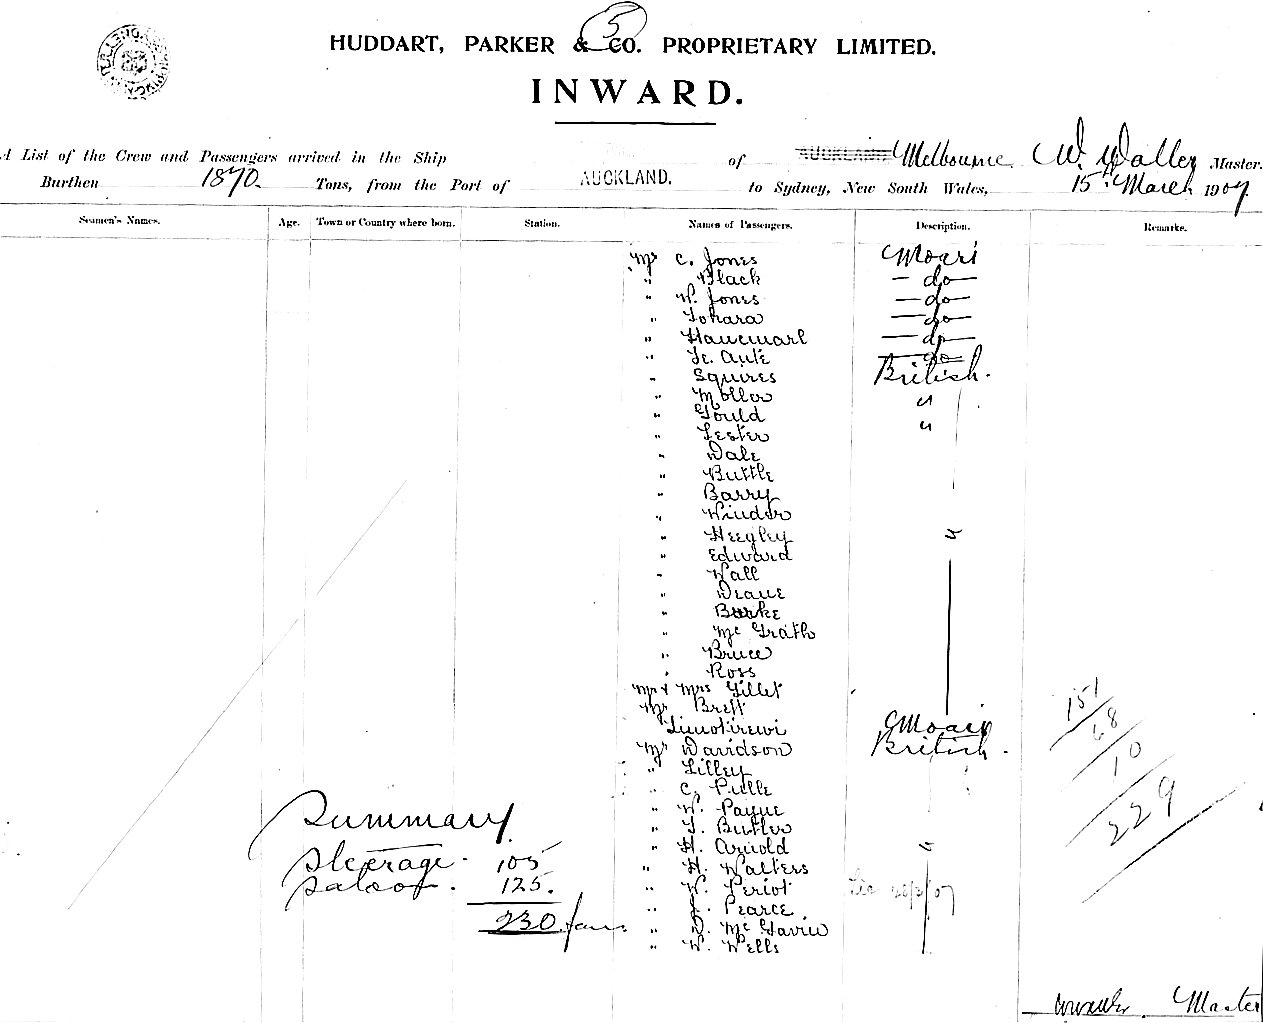 5
HUDDART, PARKER & CO. PROPRIETARY LIMITED.
INWARD.
A List of the Crew and Passengers arrived in the Ship of Melbourne W. Waller Master.
Burthen 1870. Tons, from the Port of AUCKLAND. to Sydney, New South Wales, 15th March 1907
Seamen's Names. Age. Town or Country where born. Station. Names of Passengers. Description. Remarks.
Mr C. Jones Moari
" Black — do —
" W. Jones — do —
" Tohara — do —
" — do —
" do
" Squires British.
" "
" Gould "
" Lester
" Dale
" Buttle
" Barry
" Winder
" Hegley "
" Edward
" Wall
" Deane
" Burke
" Mc Grath
" Bruce
" Ross
Mr & Mrs Gillet
Mr Brett
Moari
Mr Davidson British.
" Lilley
" C.
" W. Payne
" T. Butler
" H. Arnold "
" H. Walters
" W.
" J. Pearce
" D. Mc Gavin
" W. Wells
Summary
Steerage. 105
Saloon. 125.
230
151
68
10
229
Master